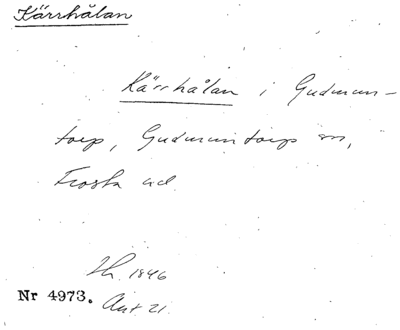 Kärrhålan
Kärrhålan i Gudmun-
torp, Gudmuntorps sn,
Frosta hd.
1846
Nr 4973.